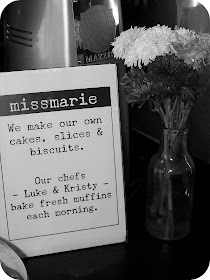 missmarie
We make our own
cakes, slices &
biscuits.
Our chefs
- Luke & Kristy -
bake fresh muffins
each morning.